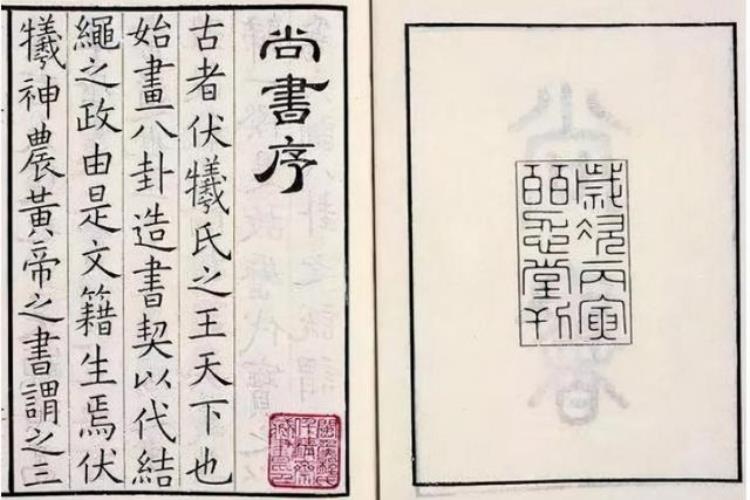 歲次丙寅
百忍堂刊
尚書序
古者伏犧氏之王天下也
始畫八卦造書契以代結
繩之政由是文籍生焉伏
犧神農黃帝之書謂之三